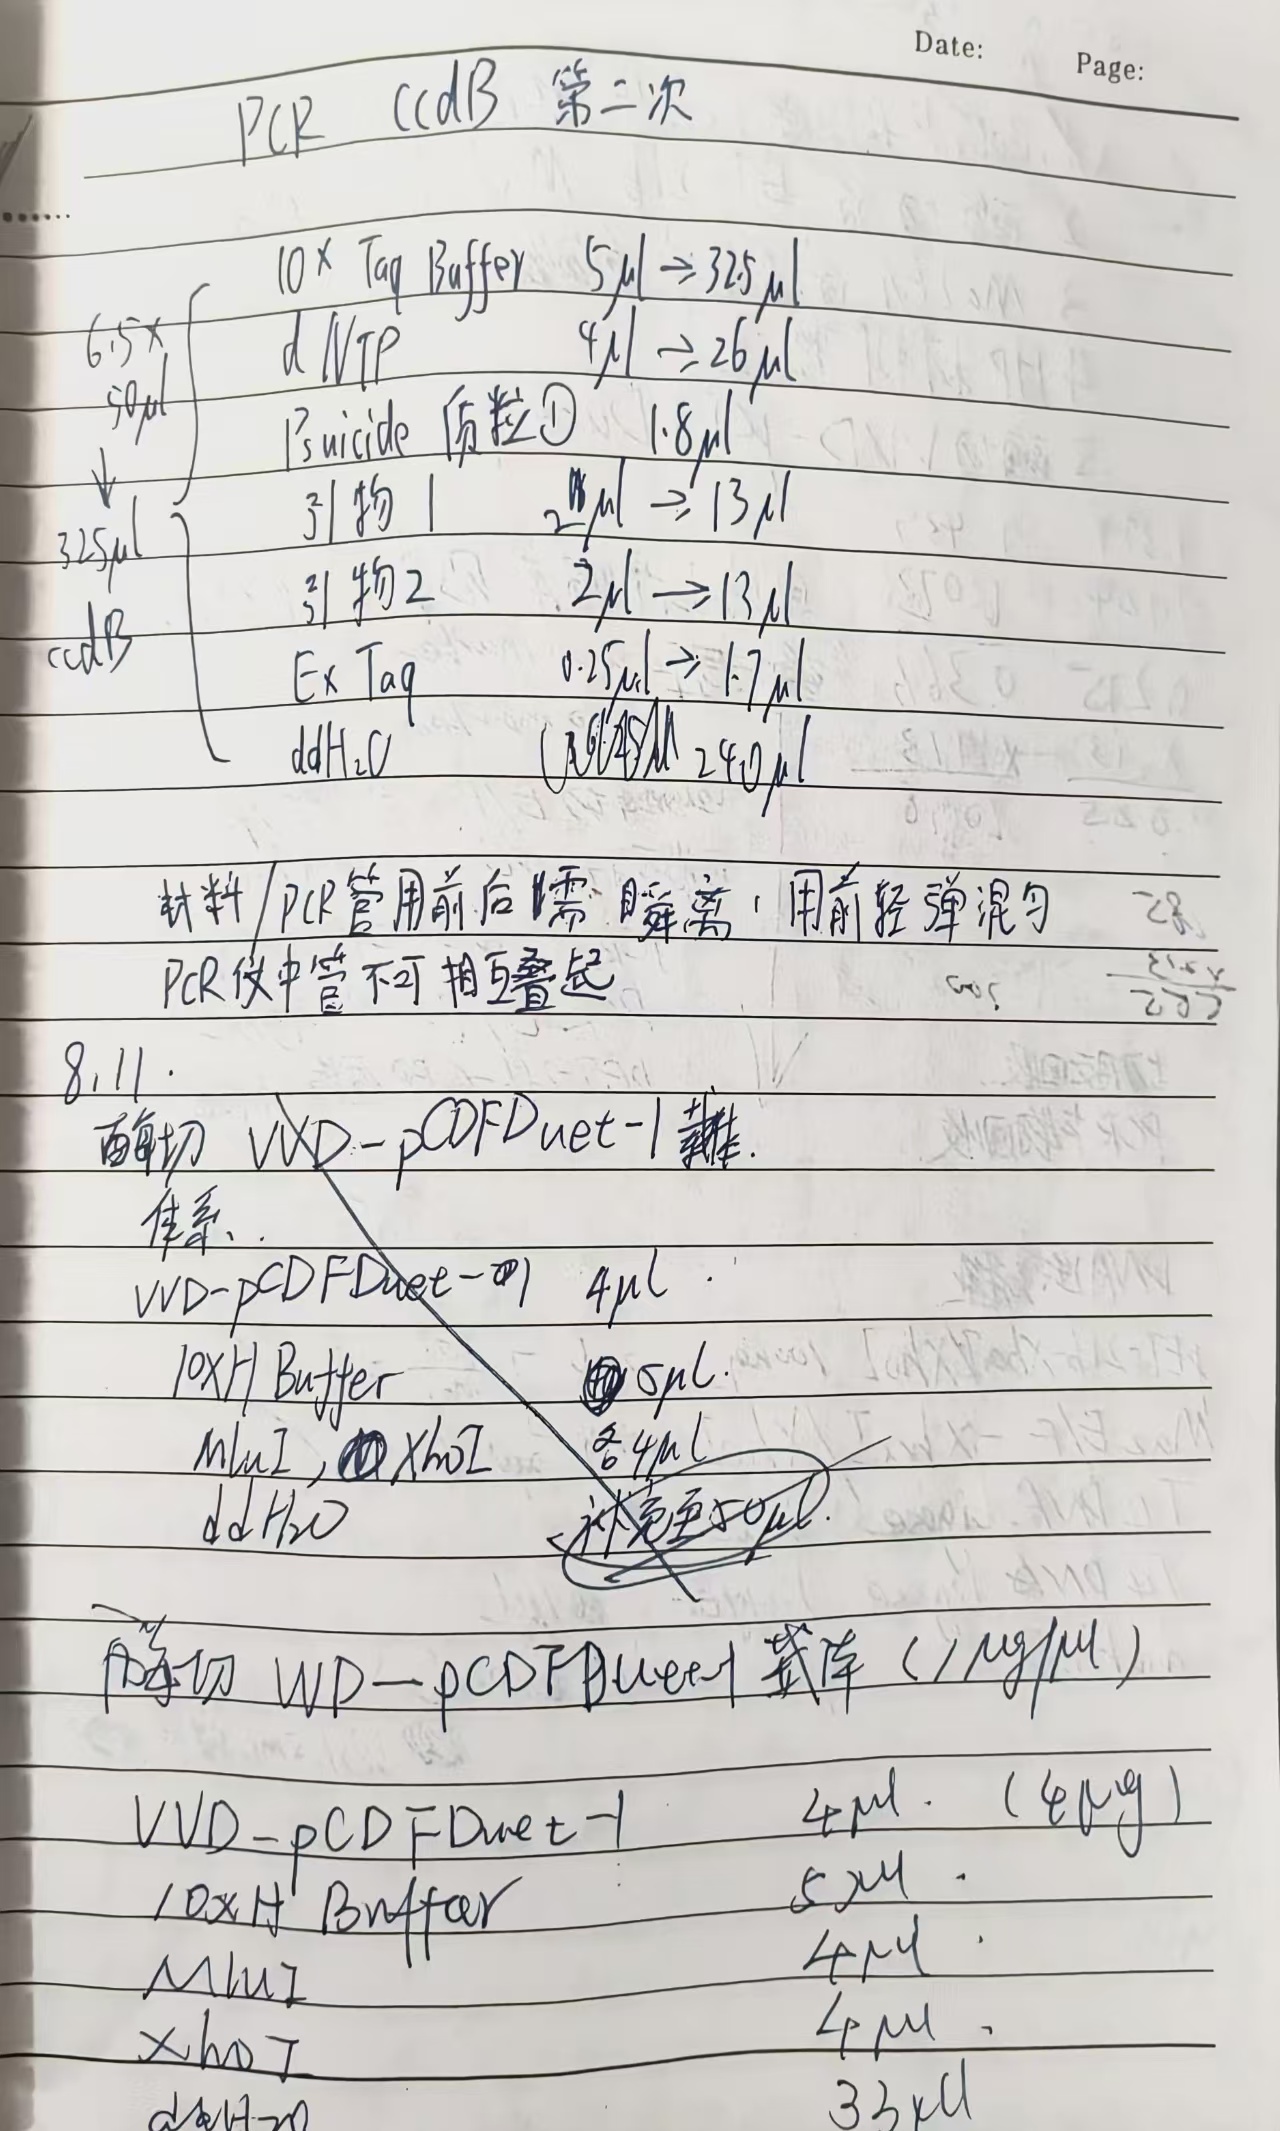 Date: Page:
PCR ccdB 第二次
10× Taq Buffer 5μl → 32.5μl
dNTP 4μl → 26μl
Psuicide 质粒① 1.8μl
引物1 2μl → 13μl
引物2 2μl → 13μl
Ex Taq 0.25μl → 1.7μl
ddH₂O 240μl
6.5×
50μl
↓
325μl
ccdB
材料/PCR管用前后需瞬离,用前轻弹混匀
PCR仪中管不可相互叠起
8.11.
酶切 VVD-pCDFDuet-1 载体.
体系.
VVD-pCDFDuet-1 4μl.
10×H Buffer 5μl.
MluI, XhoI 各4μl
ddH₂O 补充至50μl.
酶切 VVD-pCDFDuet-1 载体 (1μg/μl)
VVD-pCDFDuet-1 4μl. (4μg)
10×H Buffer 5μl.
MluI 4μl.
XhoI 4μl.
ddH₂O 33μl